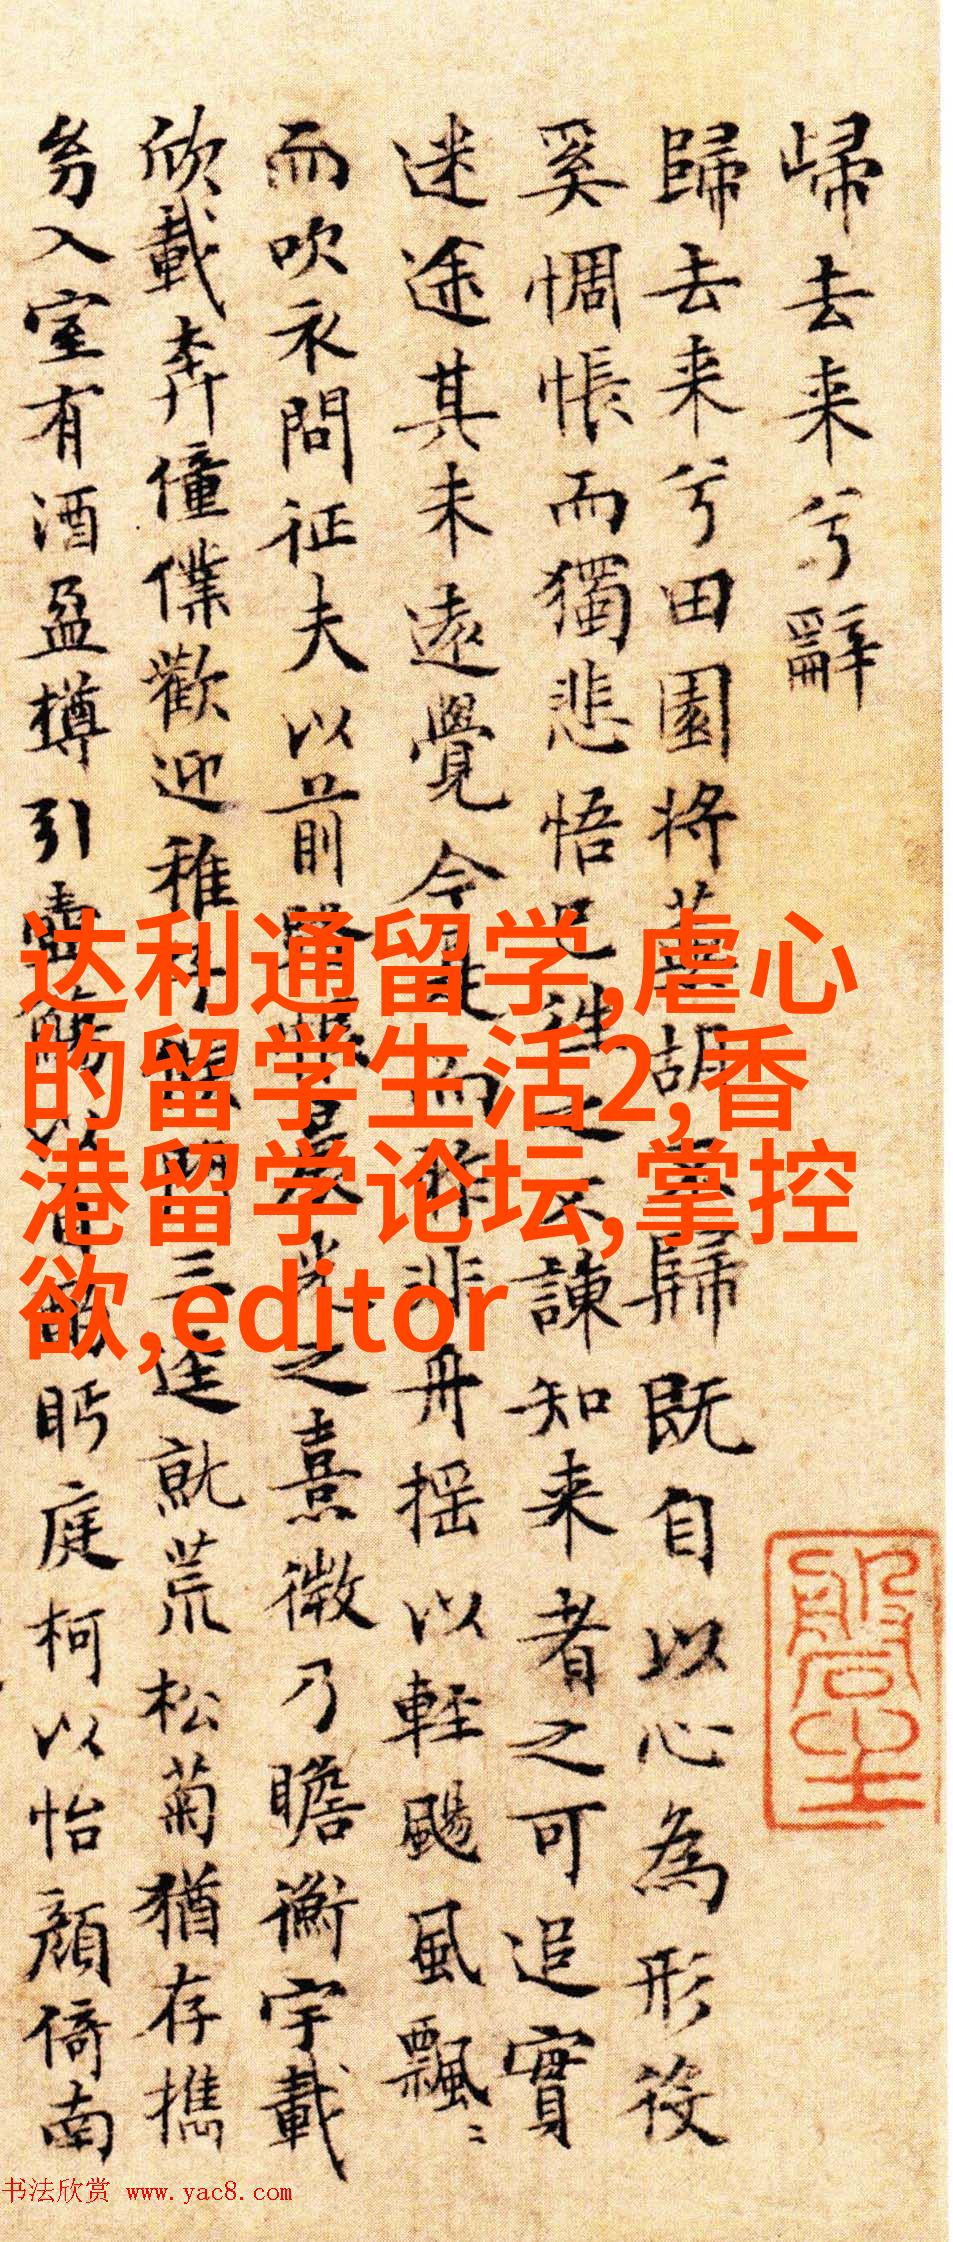 歸去来兮辭
歸去来兮田園将蕪胡不歸既自以心為形役
奚惆悵而獨悲悟已往之不諫知来者之可追實
迷途其未遠覺今是而昨非舟摇以輕颺風飄〻
而吹衣問征夫以前路恨晨光之熹微乃瞻衡宇載
欣載奔僮僕歡迎稚子候門三逕就荒松菊猶存携
㓜入室有酒盈樽引壺觴以自酌眄庭柯以怡顏倚南
达利通留学,虐心
的留学生活2,香
港留学论坛,掌控
欲,editor
书法欣赏 www.yac8.com